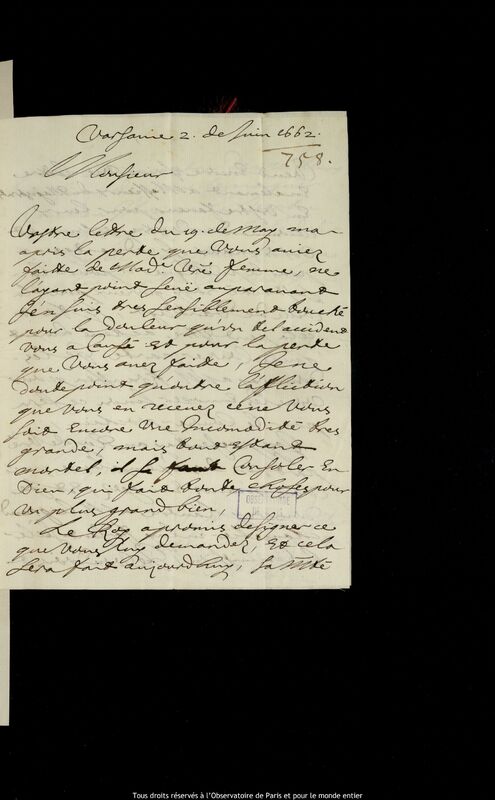 Varsavie 2. de Juin 1662.
758.
Monsieur
Vostre lettre du 19. de May m'a
apris la perte que Vous aviez
faitte de Mad.e Vrē femme, ne
l'ayant point sceu auparavant
J'en suis tres sensiblement touché
pour la douleur qu'un tel accident
vous a causé et pour la perte
que Vous avez faite, Je ne
doute point qu'outre l'affliction
que vous en recevez ce ne Vous
soit encore une Incomodité tres
grande, mais tout estant
mortel, il se faut Consoler En
Dieu, qui fait toute choses pour
un plus grand bien,
Le Roy a promis de signer ce
que vous luy demandez, Et cela
sera fait aujourdhuy, sa Mté
Tous droits réservés à l'Observatoire de Paris et pour le monde entier